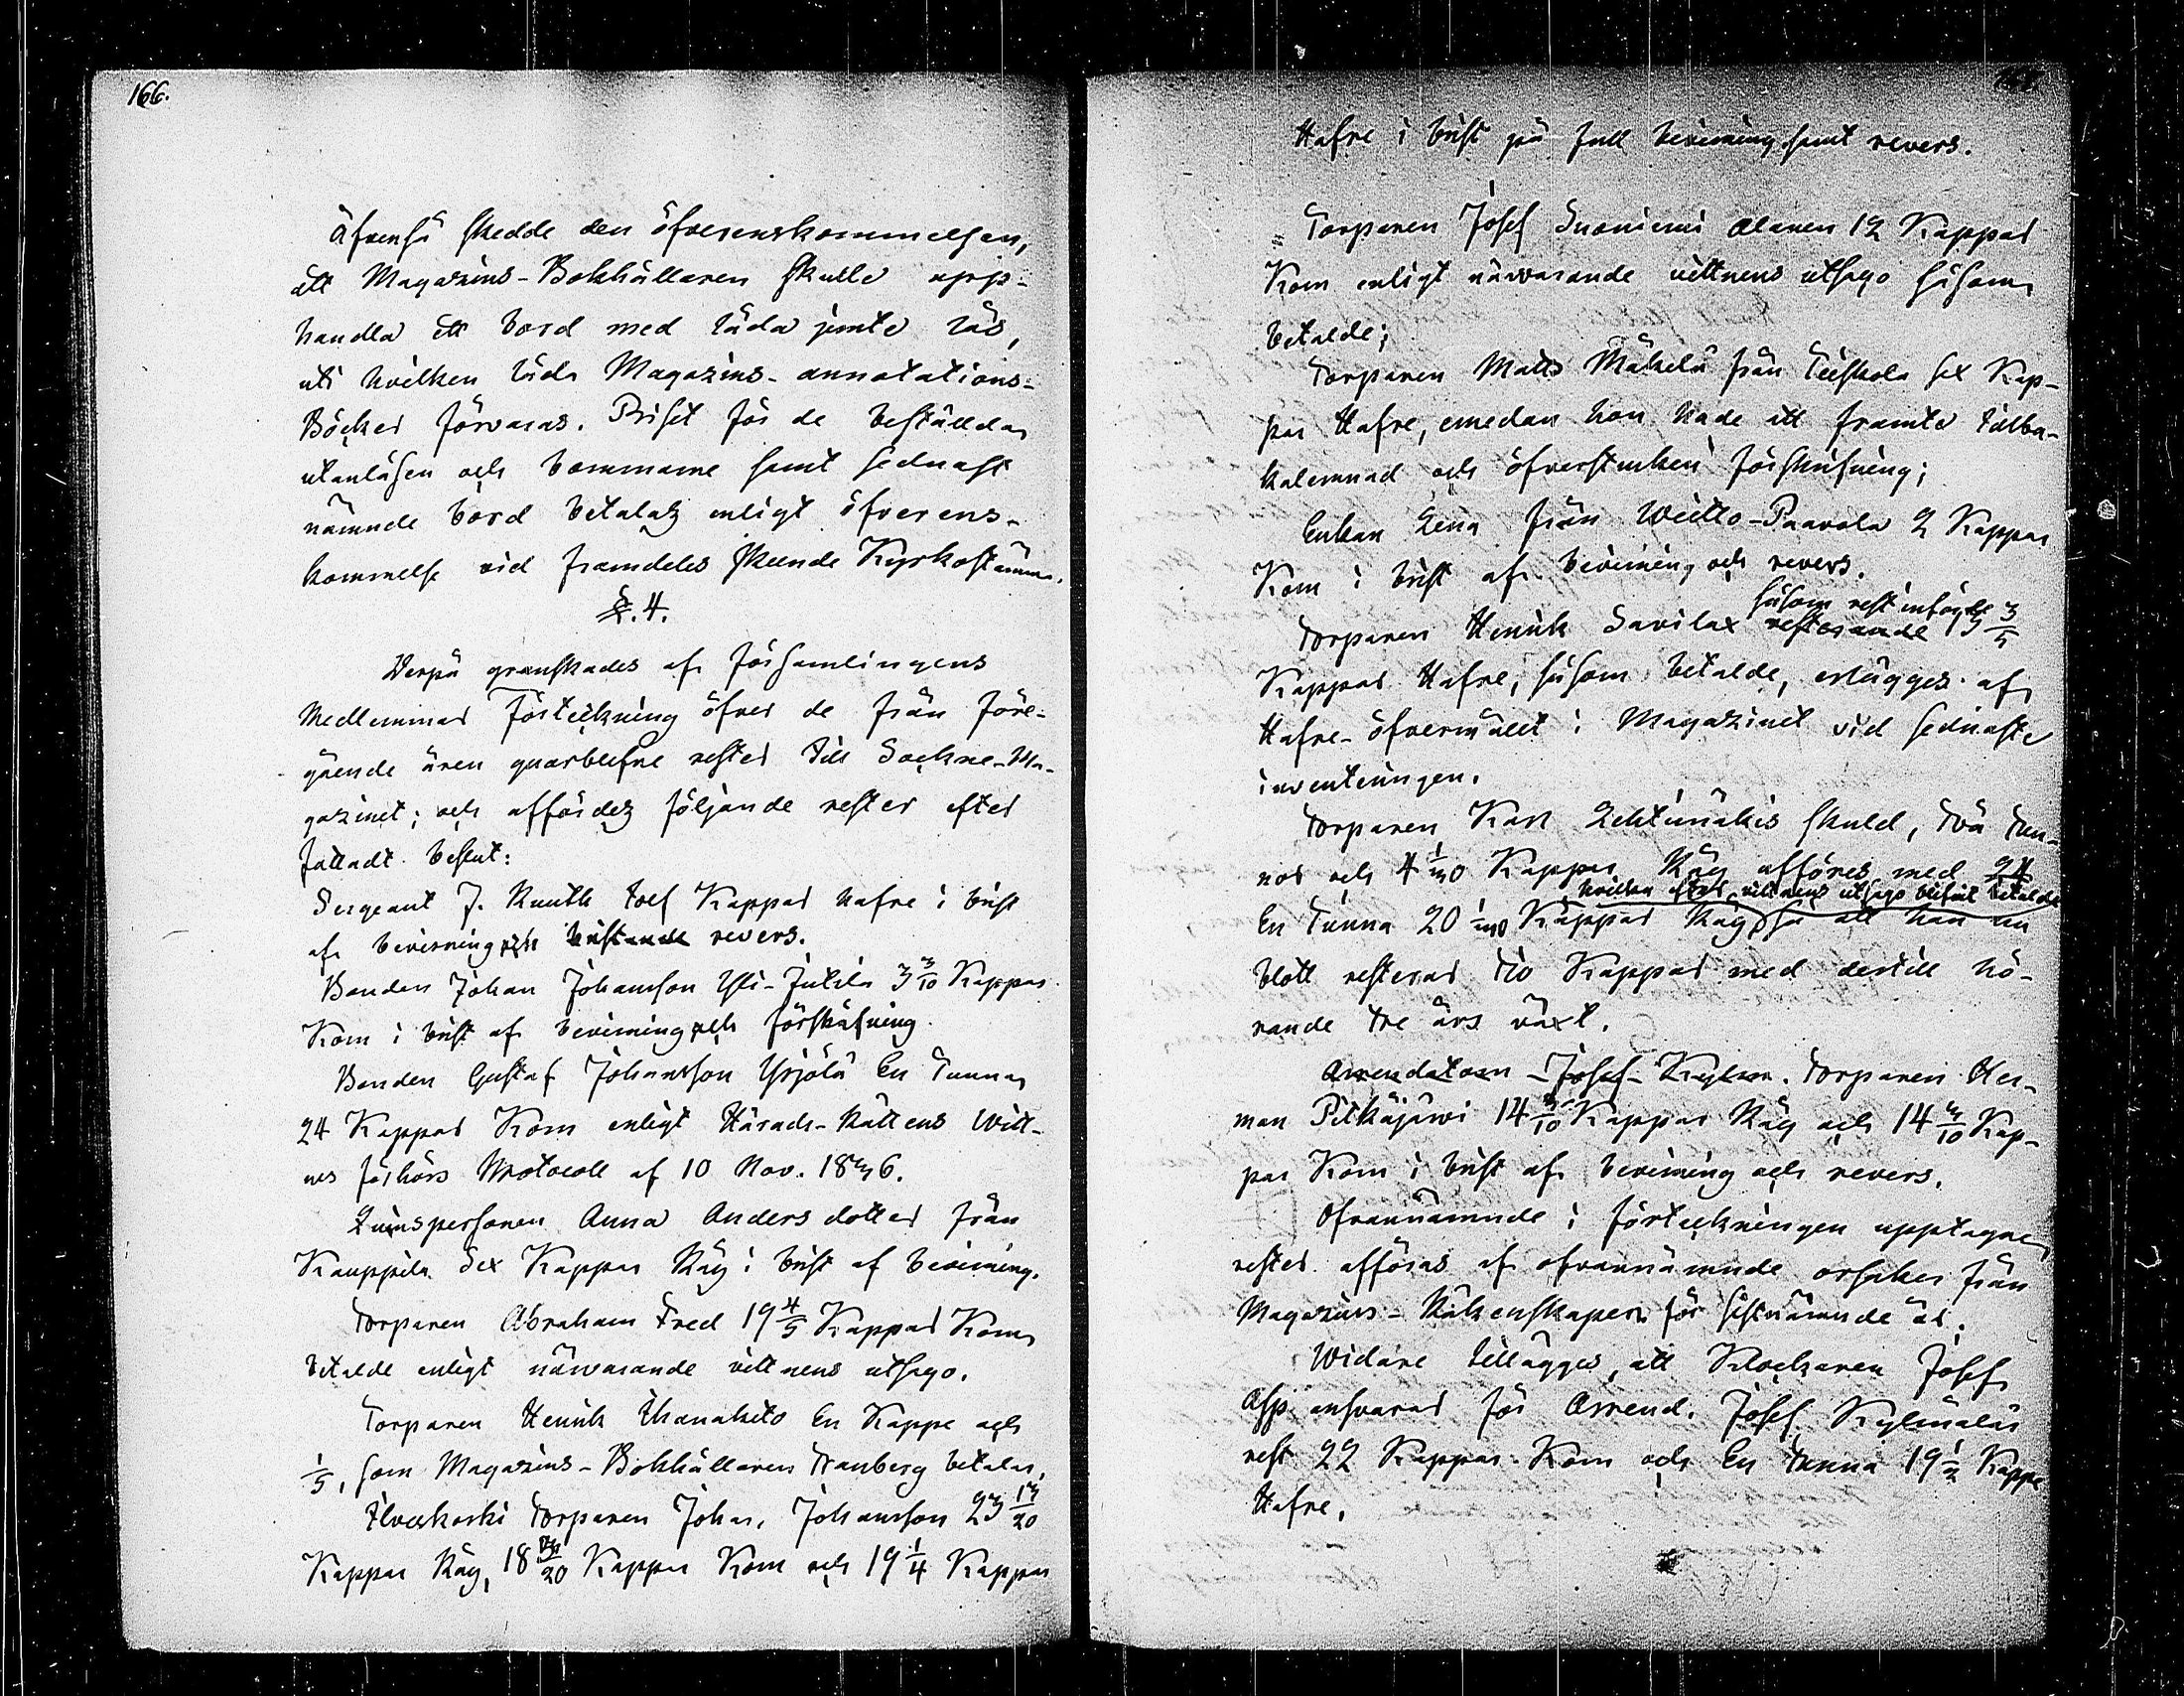 166.
Äfvenså skedde den öfverenskommelsen,
att Magazins-Bokhållaren skulle upp-
handla ett bord med låda jemte lås,
uti hvilken låda Magazins-annotations-
Böcker förvaras. Priset för de beställda
utanlåsen och bommarne samt sednast
nämnde bord betalas enligt öfverens-
kommelse vid framdeles skeende Kyrkostämma.
§. 4.
Derpå granskades af Församlingens
Medlemmar Förteckning öfver de från före-
gående åren quarblefne rester till Sockne-Ma-
gazinet; och affördes följande rester efter
fattadt beslut:
Sergeant J. Knuth tolf Kappar hafre i brist
af bevisning och bristande revers.
Bonden Johan Johansson Yli-Jutila 3 3/10 Kappar
Korn i brist af bevisning och förskrifning.
Bonden Gustaf Johansson Yrjölä En Tunna
24 Kappar Korn enligt Härads-Rättens Witt-
nes förhörs Protocoll af 10 Nov. 1836.
Qvinspersonen Anna Anders dotter från
Kauppila Sex Kappar Råg i brist af bevisning.
Torparen Abraham Fred 19 4/5 Kappar Korn
betalde enligt närvarande vittnens utsago.
Torparen Henrik Ihanakito En Kappe och
1/5, som Magazins-Bokhållaren Tranberg betalar.
Ilveskoski Torparen Johan Johansson 23 13/20
Kappar Råg, 18 /20 Kappar Korn och 19 1/4 Kappar
Hafre i brist på full bevisning samt revers.
Torparen Josef Suoniemi Alanen 12 Kappar
Korn enligt närvarande vittnens utsago såsom
betalde;
Torparen Matts Mäkelä från Teiskola sex Kap-
par Hafre, emedan hon hade ett framte tillba-
kalemnad och öfverstruken förskrifning;
Enkan Lena från Weitto-Paavola 2 Kappar
Korn i brist af bevisning och revers.
såsom rest införde
Torparen Henrik Savilax resterande 13 3/5
Kappar Hafre, såsom betalde, erlägges af
Hafre-öfvermålet i Magazinet vid sednaste
inventeringen.
Torparen Karl Lehtimäkis skuld, två Tun-
nor och 4 1/30 Kappar Råg afföres med 24
hvilken efter vittnens utsago blifvit betalde
En Tunna 20 1/30 Kappar Råg, så att han nu
blott resterar tio Kappar med dertill hö-
rande tre års växt.
Arrendatorn Josef Kylm. Torparen Her-
man Pitkäjärvi 14 3/10 Kappar Råg och 14 3/10 Kap-
par Korn i brist af bevisning och revers.
Ofvannämnde i förteckningen upptagne
rester afföras af ofvannämnde orsaker från
Magazins-Räkenskapen för sistnämnde år.
Widare tillägges, att Klockaren Josef
Asp ansvarar för Arrend. Josef Kylmäläs
rest 22 Kappar Korn och En Tunna 19 1/2 Kappe
Hafre.